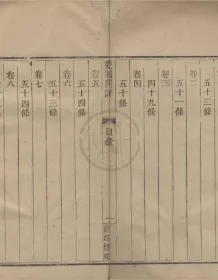 五十三條
卷二
五十一條
卷三
四十九條
卷四
五十條
目錄
卷五
五十四條
卷六
五十三條
卷七
五十四條
卷八